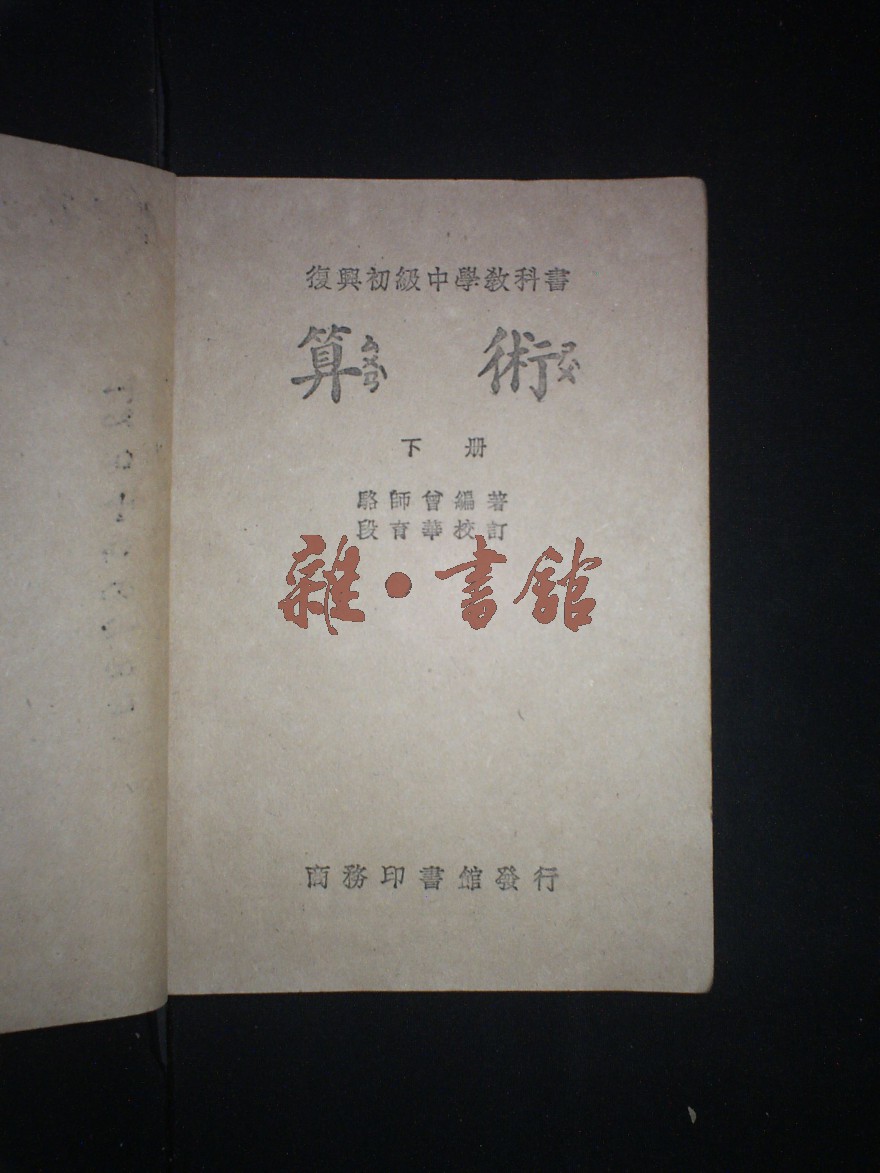 復興初級中學敎科書
算ㄙㄨㄢ 術ㄕㄨ
下册
駱師曾編著
段育華校訂
雜・書館
商務印書館發行